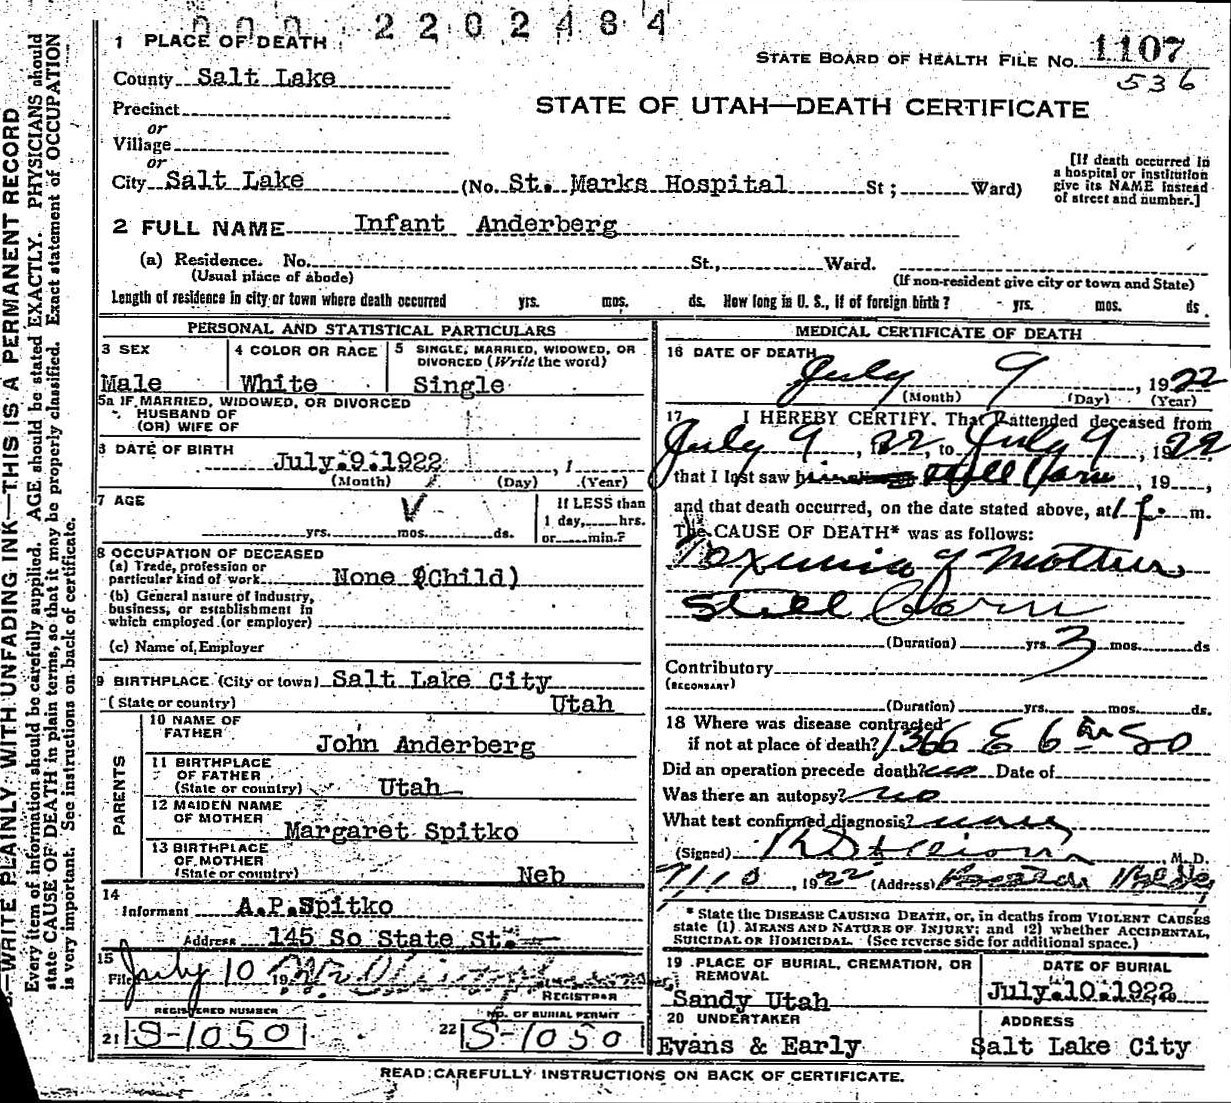 000 2202484
1 PLACE OF DEATH
STATE BOARD OF HEALTH FILE No. 1107
County Salt Lake
536
Precinct
STATE OF UTAH—DEATH CERTIFICATE
or
Village
or
City Salt Lake (No. St. Marks Hospital St ; Ward)
[If death occurred in
a hospital or institution
give its NAME instead
of street and number.]
2 FULL NAME Infant Anderberg
(a) Residence. No. St., Ward.
(Usual place of abode)
(If non-resident give city or town and State)
Length of residence in city or town where death occurred yrs. mos. ds. How long in U. S., if of foreign birth? yrs. mos. ds.
PERSONAL AND STATISTICAL PARTICULARS
3 SEX
Male
4 COLOR OR RACE
White
5 SINGLE, MARRIED, WIDOWED, OR
DIVORCED (Write the word)
Single
5a IF MARRIED, WIDOWED, OR DIVORCED
HUSBAND OF
(OR) WIFE OF
6 DATE OF BIRTH July.9.1922 , 1
(Month) (Day) (Year)
7 AGE
yrs. mos. ds.
If LESS than
1 day, hrs.
or min.?
8 OCCUPATION OF DECEASED
(a) Trade, profession or
particular kind of work None (Child)
(b) General nature of industry,
business, or establishment in
which employed (or employer)
(c) Name of Employer
9 BIRTHPLACE (City or town) Salt Lake City
(State or country) Utah
PARENTS
10 NAME OF
FATHER John Anderberg
11 BIRTHPLACE
OF FATHER
(State or country) Utah
12 MAIDEN NAME
OF MOTHER Margaret Spitko
13 BIRTHPLACE
OF MOTHER
(State or country) Neb
14
Informant A.P.Spitko
Address 145 So State St.
15
Filed July 10 19
REGISTRAR
REGISTERED NUMBER
21 S-1050
NO. OF BURIAL PERMIT
22 S-1050
MEDICAL CERTIFICATE OF DEATH
16 DATE OF DEATH
July 9, 1922
(Month) (Day) (Year)
17 I HEREBY CERTIFY, That I attended deceased from
July 9, 22, to July 9, 1922
that I last saw Still Born, 19 ,
and that death occurred, on the date stated above, at 1 P. m.
The CAUSE OF DEATH* was as follows:
Toxemia of Mother
Still Born
(Duration) yrs. 3 mos. ds
Contributory
(SECONDARY)
(Duration) yrs. mos. ds.
18 Where was disease contracted
if not at place of death? 1366 E 6th So
Did an operation precede death? Date of
Was there an autopsy? no
What test confirmed diagnosis?
(Signed) M. D.
7/10, 1922 (Address)
* State the DISEASE CAUSING DEATH, or, in deaths from VIOLENT CAUSES
state (1) MEANS AND NATURE OF INJURY; and (2) whether ACCIDENTAL,
SUICIDAL OR HOMICIDAL. (See reverse side for additional space.)
19 PLACE OF BURIAL, CREMATION, OR
REMOVAL
Sandy Utah
DATE OF BURIAL
July.10.1922
20 UNDERTAKER
Evans & Early
ADDRESS
Salt Lake City
READ CAREFULLY INSTRUCTIONS ON BACK OF CERTIFICATE.
WRITE PLAINLY WITH UNFADING INK—THIS IS A PERMANENT RECORD
Every item of information should be carefully supplied. AGE should be stated EXACTLY. PHYSICIANS should
state CAUSE OF DEATH in plain terms, so that it may be properly classified. Exact statement of OCCUPATION
is very important. See instructions on back of certificate.